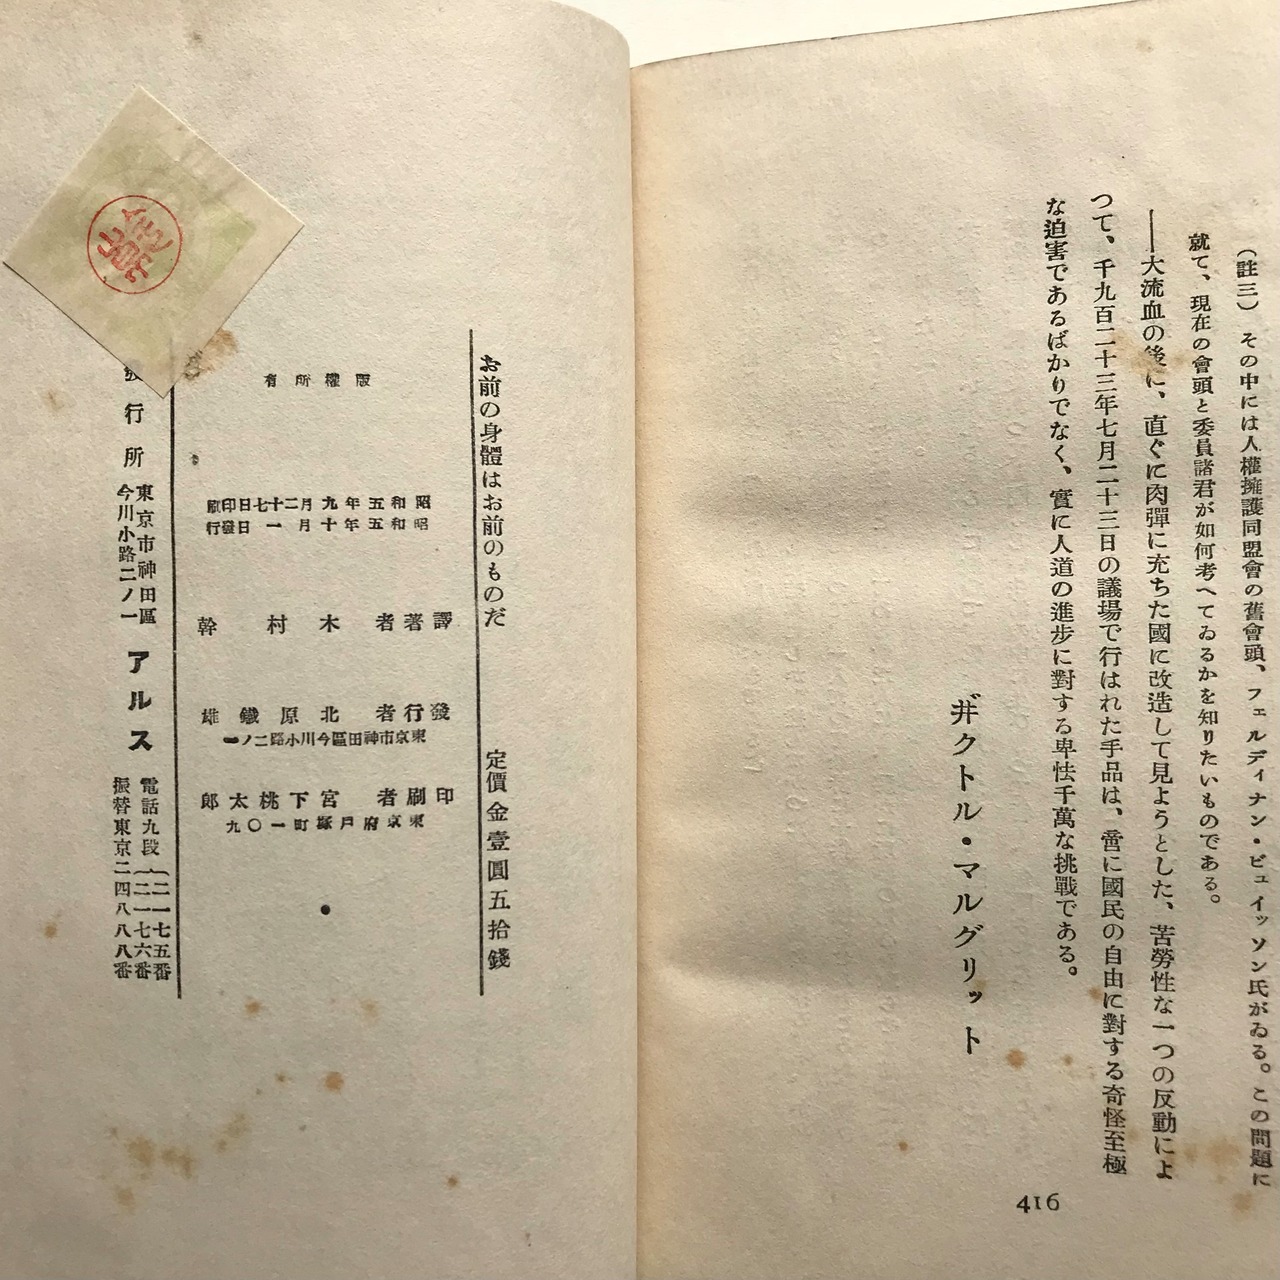 （註三）　その中には人權擁護同盟會の舊會頭、フェルディナン・ビュイッソン氏がゐる。この問題に
就て、現在の會頭と委員諸君が如何考へてゐるかを知りたいものである。
――大流血の後に、直ぐに肉彈に充ちた國に改造して見ようとした、苦勞性な一つの反動によ
つて、千九百二十三年七月二十三日の議場で行はれた手品は、啻に國民の自由に對する奇怪至極
な迫害であるばかりでなく、實に人道の進步に對する卑怯千萬な挑戰である。
ヰクトル・マルグリット
416
お前の身體はお前のものだ
定價金壹圓五拾錢
版權所有
昭和五年九月二十七日印刷
昭和五年十月一日發行
譯著者 木村幹
發行者 北原鐵雄
東京市神田區今川小路二ノ一
印刷者 宮下桃太郎
東京府戸塚町一〇九
發行所
東京市神田區
今川小路二ノ一
アルス
電話九段（二一七五番
二一七六番
振替東京二四八八八番